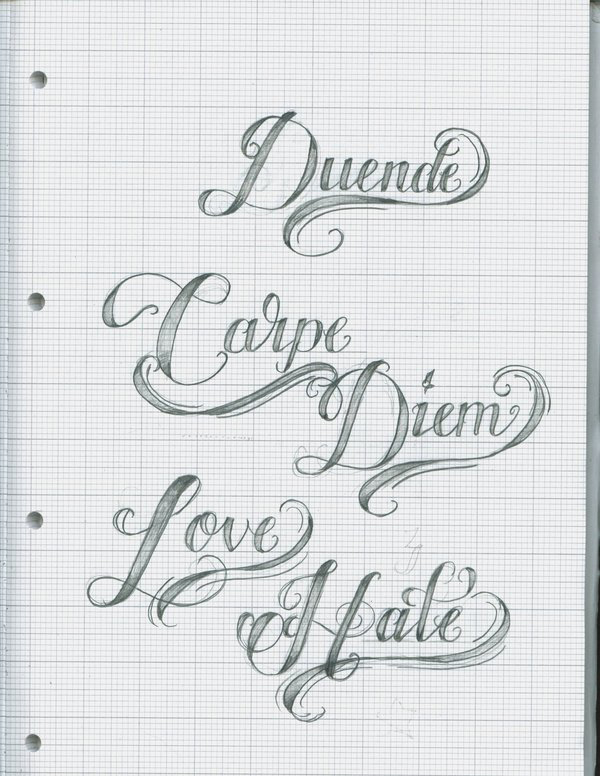 Duende
Carpe
Diem
Love
Hate